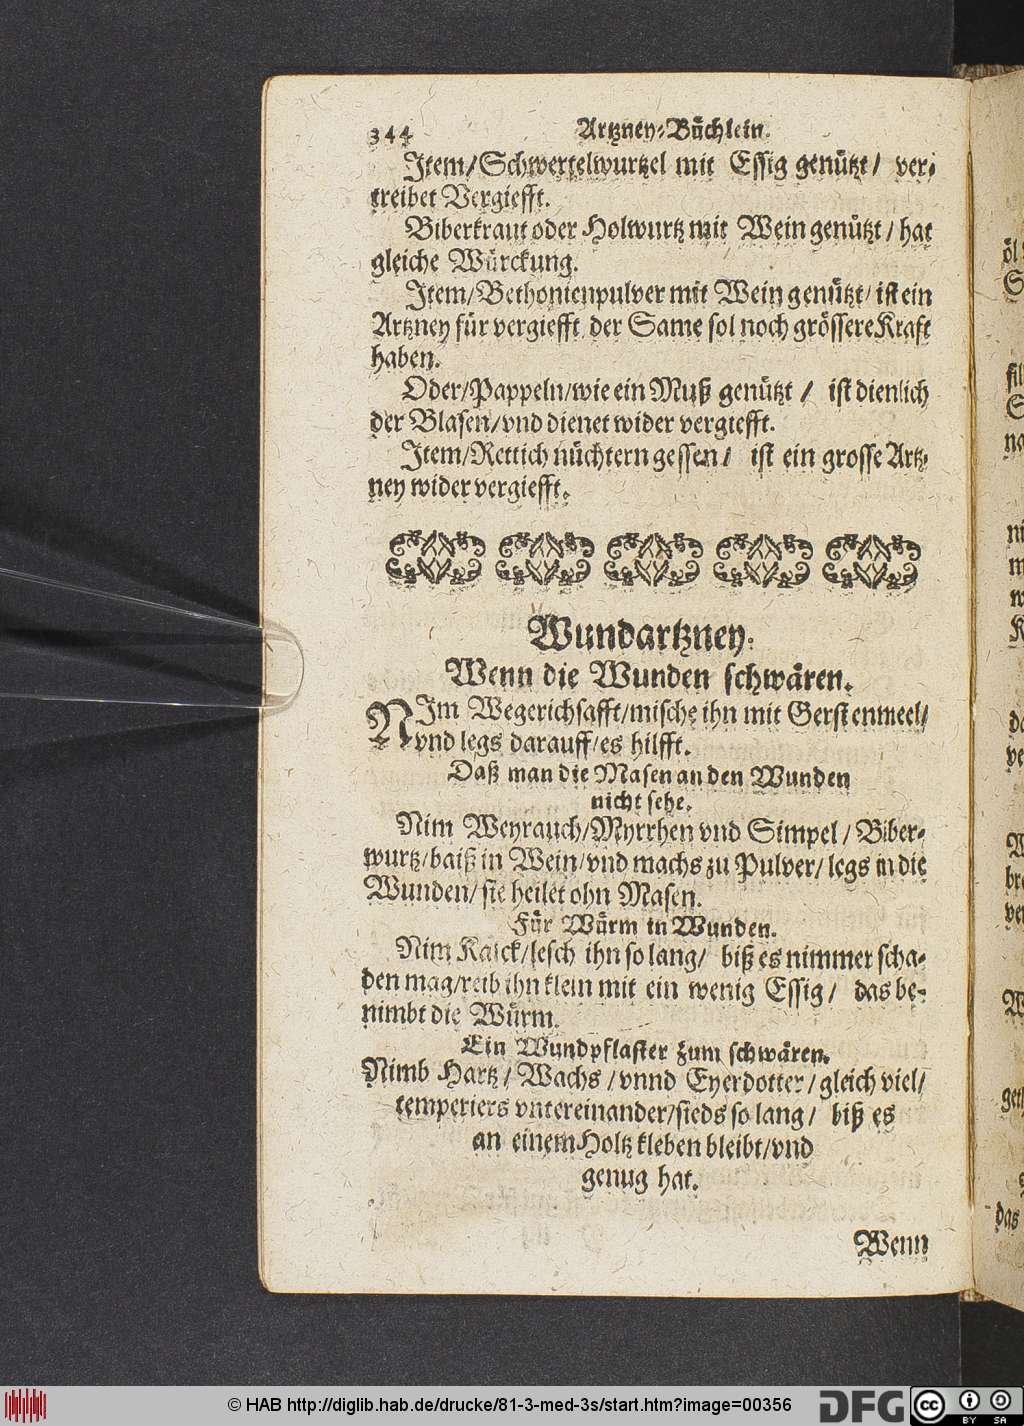 344 Artzney-Büchlein.
Item/Schwertelwurtzel mit Essig genützt/ ver-
treibet Vergiefft.
Biberkraut oder Holwurtz mit Wein genützt/hat
gleiche Würckung.
Item/Bethonienpulver mit Wein genützt/ist ein
Artzney für vergiefft/der Same sol noch grössere Krafft
haben.
Oder/Pappeln/wie ein Muß genützt/ ist dienlich
der Blasen/vnd dienet wider vergiefft.
Item/Rettich nüchtern gessen/ ist ein grosse Artz-
ney wider vergiefft.
Wundartzney.
Wenn die Wunden schwären.
NIm Wegerichsafft/mische ihn mit Gerstenmeel/
vnd legs darauff/es hilfft.
Daß man die Masen an den Wunden
nicht sehe.
Nim Weyrauch/Myrrhen vnd Simpel/ Biber-
wurtz/baiß in Wein/vnd machs zu Pulver/legs in die
Wunden/sie heilet ohn Masen.
Für Würm in Wunden.
Nim Kalck/lesch ihn so lang/ biß es nimmer scha-
den mag/reib ihn klein mit ein wenig Essig/ das be-
nimbt die Würm.
Ein Wundpflaster zum schwären.
Nimb Hartz/Wachs/vnnd Eyerdotter/gleich viel/
temperiers vntereinander/sieds so lang/ biß es
an einem Holtz kleben bleibt/vnd
genug hat.
Wenn
© HAB http://diglib.hab.de/drucke/81-3-med-3s/start.htm?image=00356
DFG
cc
BY SA